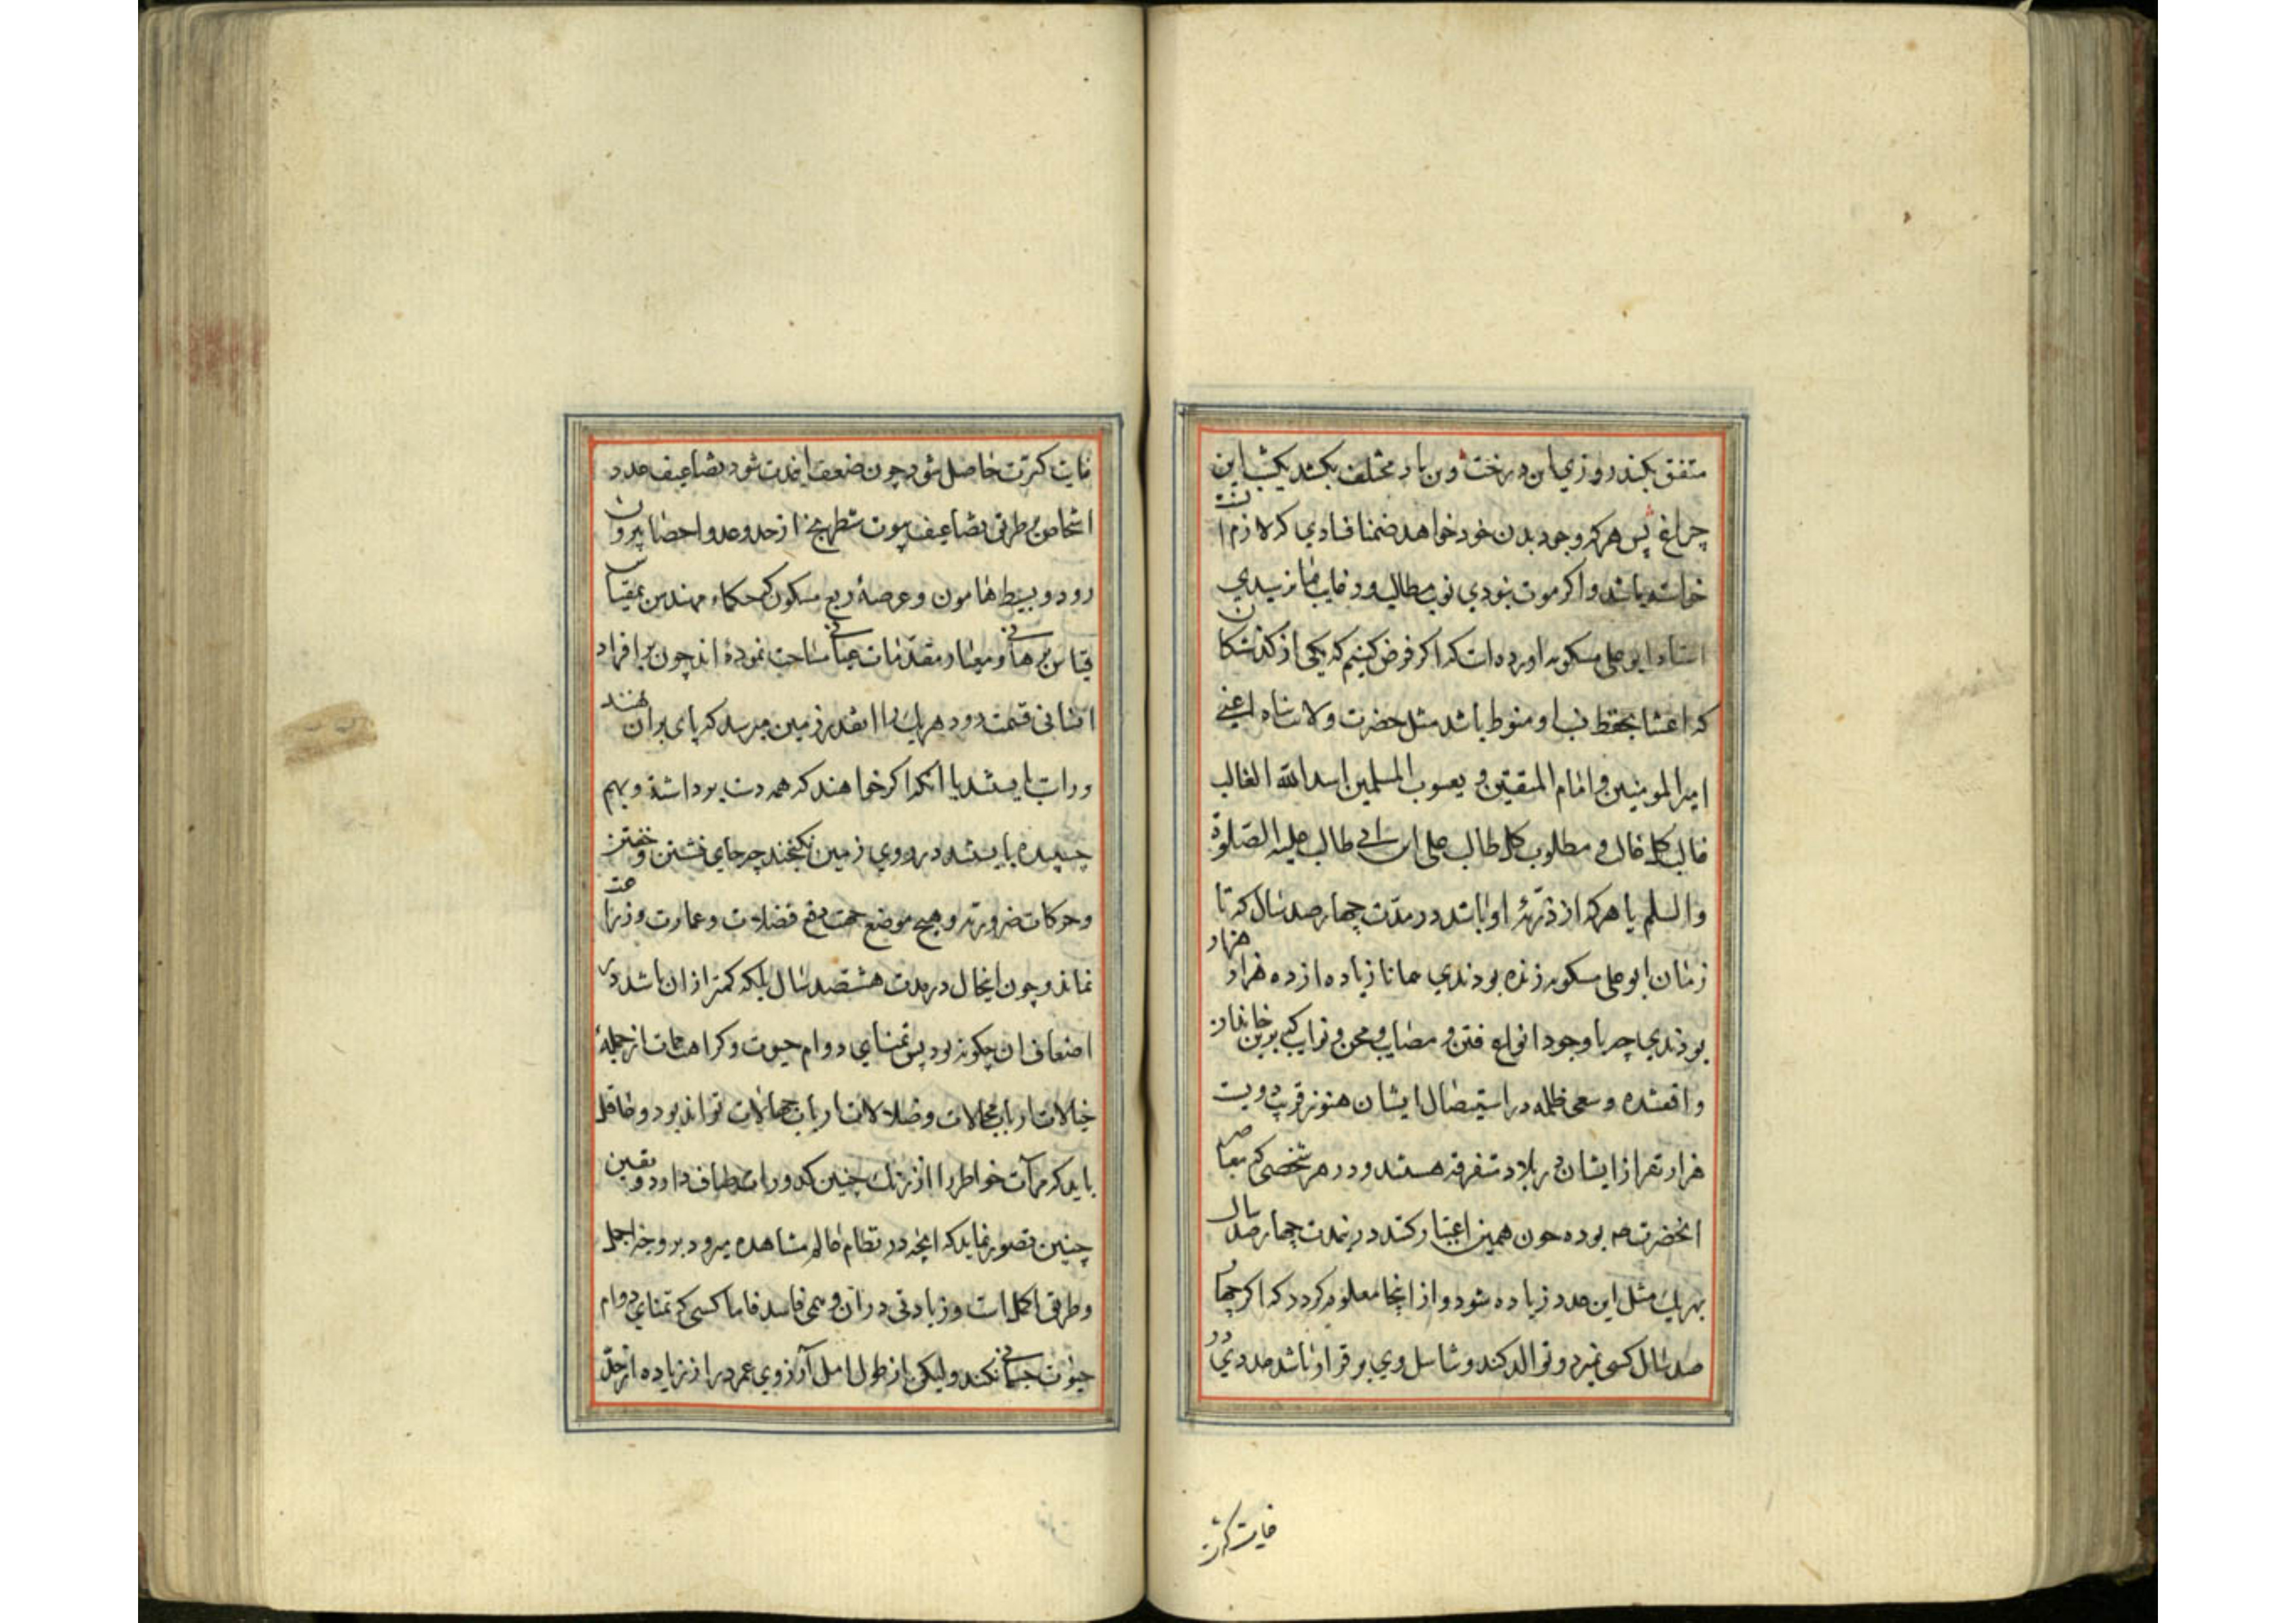 متفق بکند روزی این درخت و ن باد مختلف بکشد یکشب این
چراغ پس هر که وجود بدن خود خواهد ضمنا فسادی که لازم انست
خواسته باشد و اکر موت نبودی نوبت مطالب و رغایب بما نرسیدی
استاد ابو علی مسکویه اورده است که اکر فرض کنیم که یکی از کذشتکان
که اعتنا بحفظ نسب او منوط باشد مثل حضرت ولایت پناه اعنی
امیر المومنین و امام المتقین و یعسوب المسلمین اسد الله الغالب
غالب کل غالب و مطلوب کل طالب علی ابن ابی طالب علیه الصلوة
والسلم یا هر که از ذریهٔ او باشد در مدت چهار صد سال که تا
زمان ابو علی مسکویه زنده بودندی همانا زیاده از ده هزار هزار
بودندی چه با وجود انواع فتن و مصایب و محن و نوایب که برین خاندان
واقعشده و سعی ظلمه در استیصال ایشان هنوز قریب دویست
هزار نفر از ایشان در بلاد متفرقه هستند و در هر شخصی که معاصر
انحضرت بوده چون همین اعتبار کنند درین مدت چهار صد سال
بهر یک مثل این عدد زیاده شود و از اینجا معلوم کردد که اکر چهار
صد سال کسی نمیرد و توالد کند و تناسل وی برقرار باشد عددی در
غایت کثرت
غایت کثرت حاصل شود چون ضعف این مدت شود تضاعیف عدد
اشخاص بر طریق تضاعیف بیوت شطرنج از حد و عد و احصا بیرون
رود و بسیط هامون و عرصهٔ ربع مسکون که حکماء مهندس بمقیاس
قیاس برهانی و معیار مقدمات عیانی مساحت نموده اند چون بر افراد
انسانی قسمت رود هریک را انقدر زمین میرسد که پای بران نهند
و راست بایستند یا انکه اکر خواهند که همه دست برداشته و بهم
چسپیده بایستند در روی زمین نکنجند چه جای نشستن و خفتن
و حرکات ضروریه و هیچ موضع جهت دفع فضلات و عمارت و زراعت
نماند و چون اینحال در مدت هشتصد سال بلکه کمتر از ان باشد در
اضعاف ان چکونه بود پس تمنای دوام حیوت و کراهت ممات از جملهٔ
خیالات ارباب محالات و ضلالات ارباب جهالات تواند بود و عاقل
باید که مرآت خواطر را از زنک چنین کدورات صاف دارد و یقین
چنین تصور نماید که انچه در نظام عالم مشاهده میرود بر وجه اجمل
و طریق اکمل است و زیادتی دران وهمی فاسد فاما کسی که تمنای دوام
حیوت جسمانی نکند ولیکن از طول امل آرزوی عمر دراز زیاده از حد